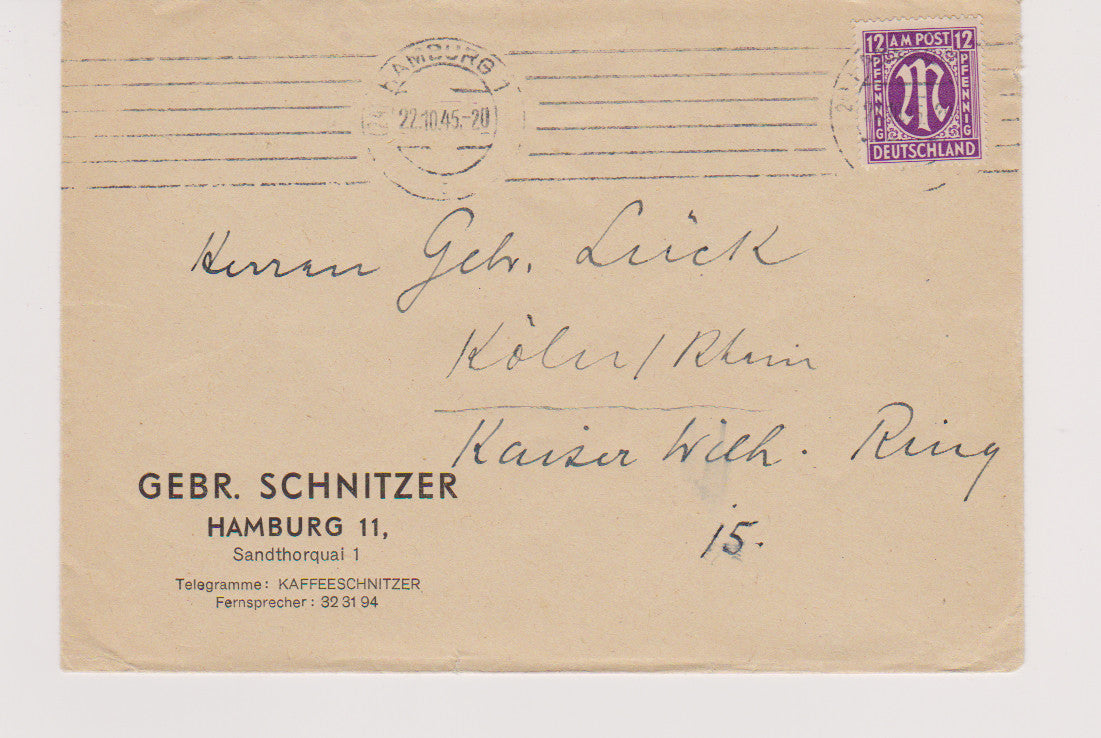 HAMBURG 1
22.10.45.-20
12 AM POST 12
PFENNIG PFENNIG
M
DEUTSCHLAND
Herren Gebr. Lück
Köln/Rhein
Kaiser Wilh. Ring
15.
GEBR. SCHNITZER
HAMBURG 11,
Sandthorquai 1
Telegramme: KAFFEESCHNITZER
Fernsprecher: 32 31 94